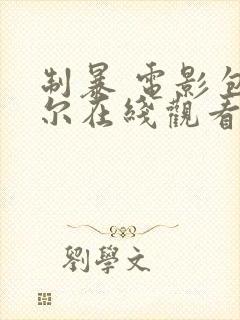 制暴 電影包
尔在綫觀看
劉學文